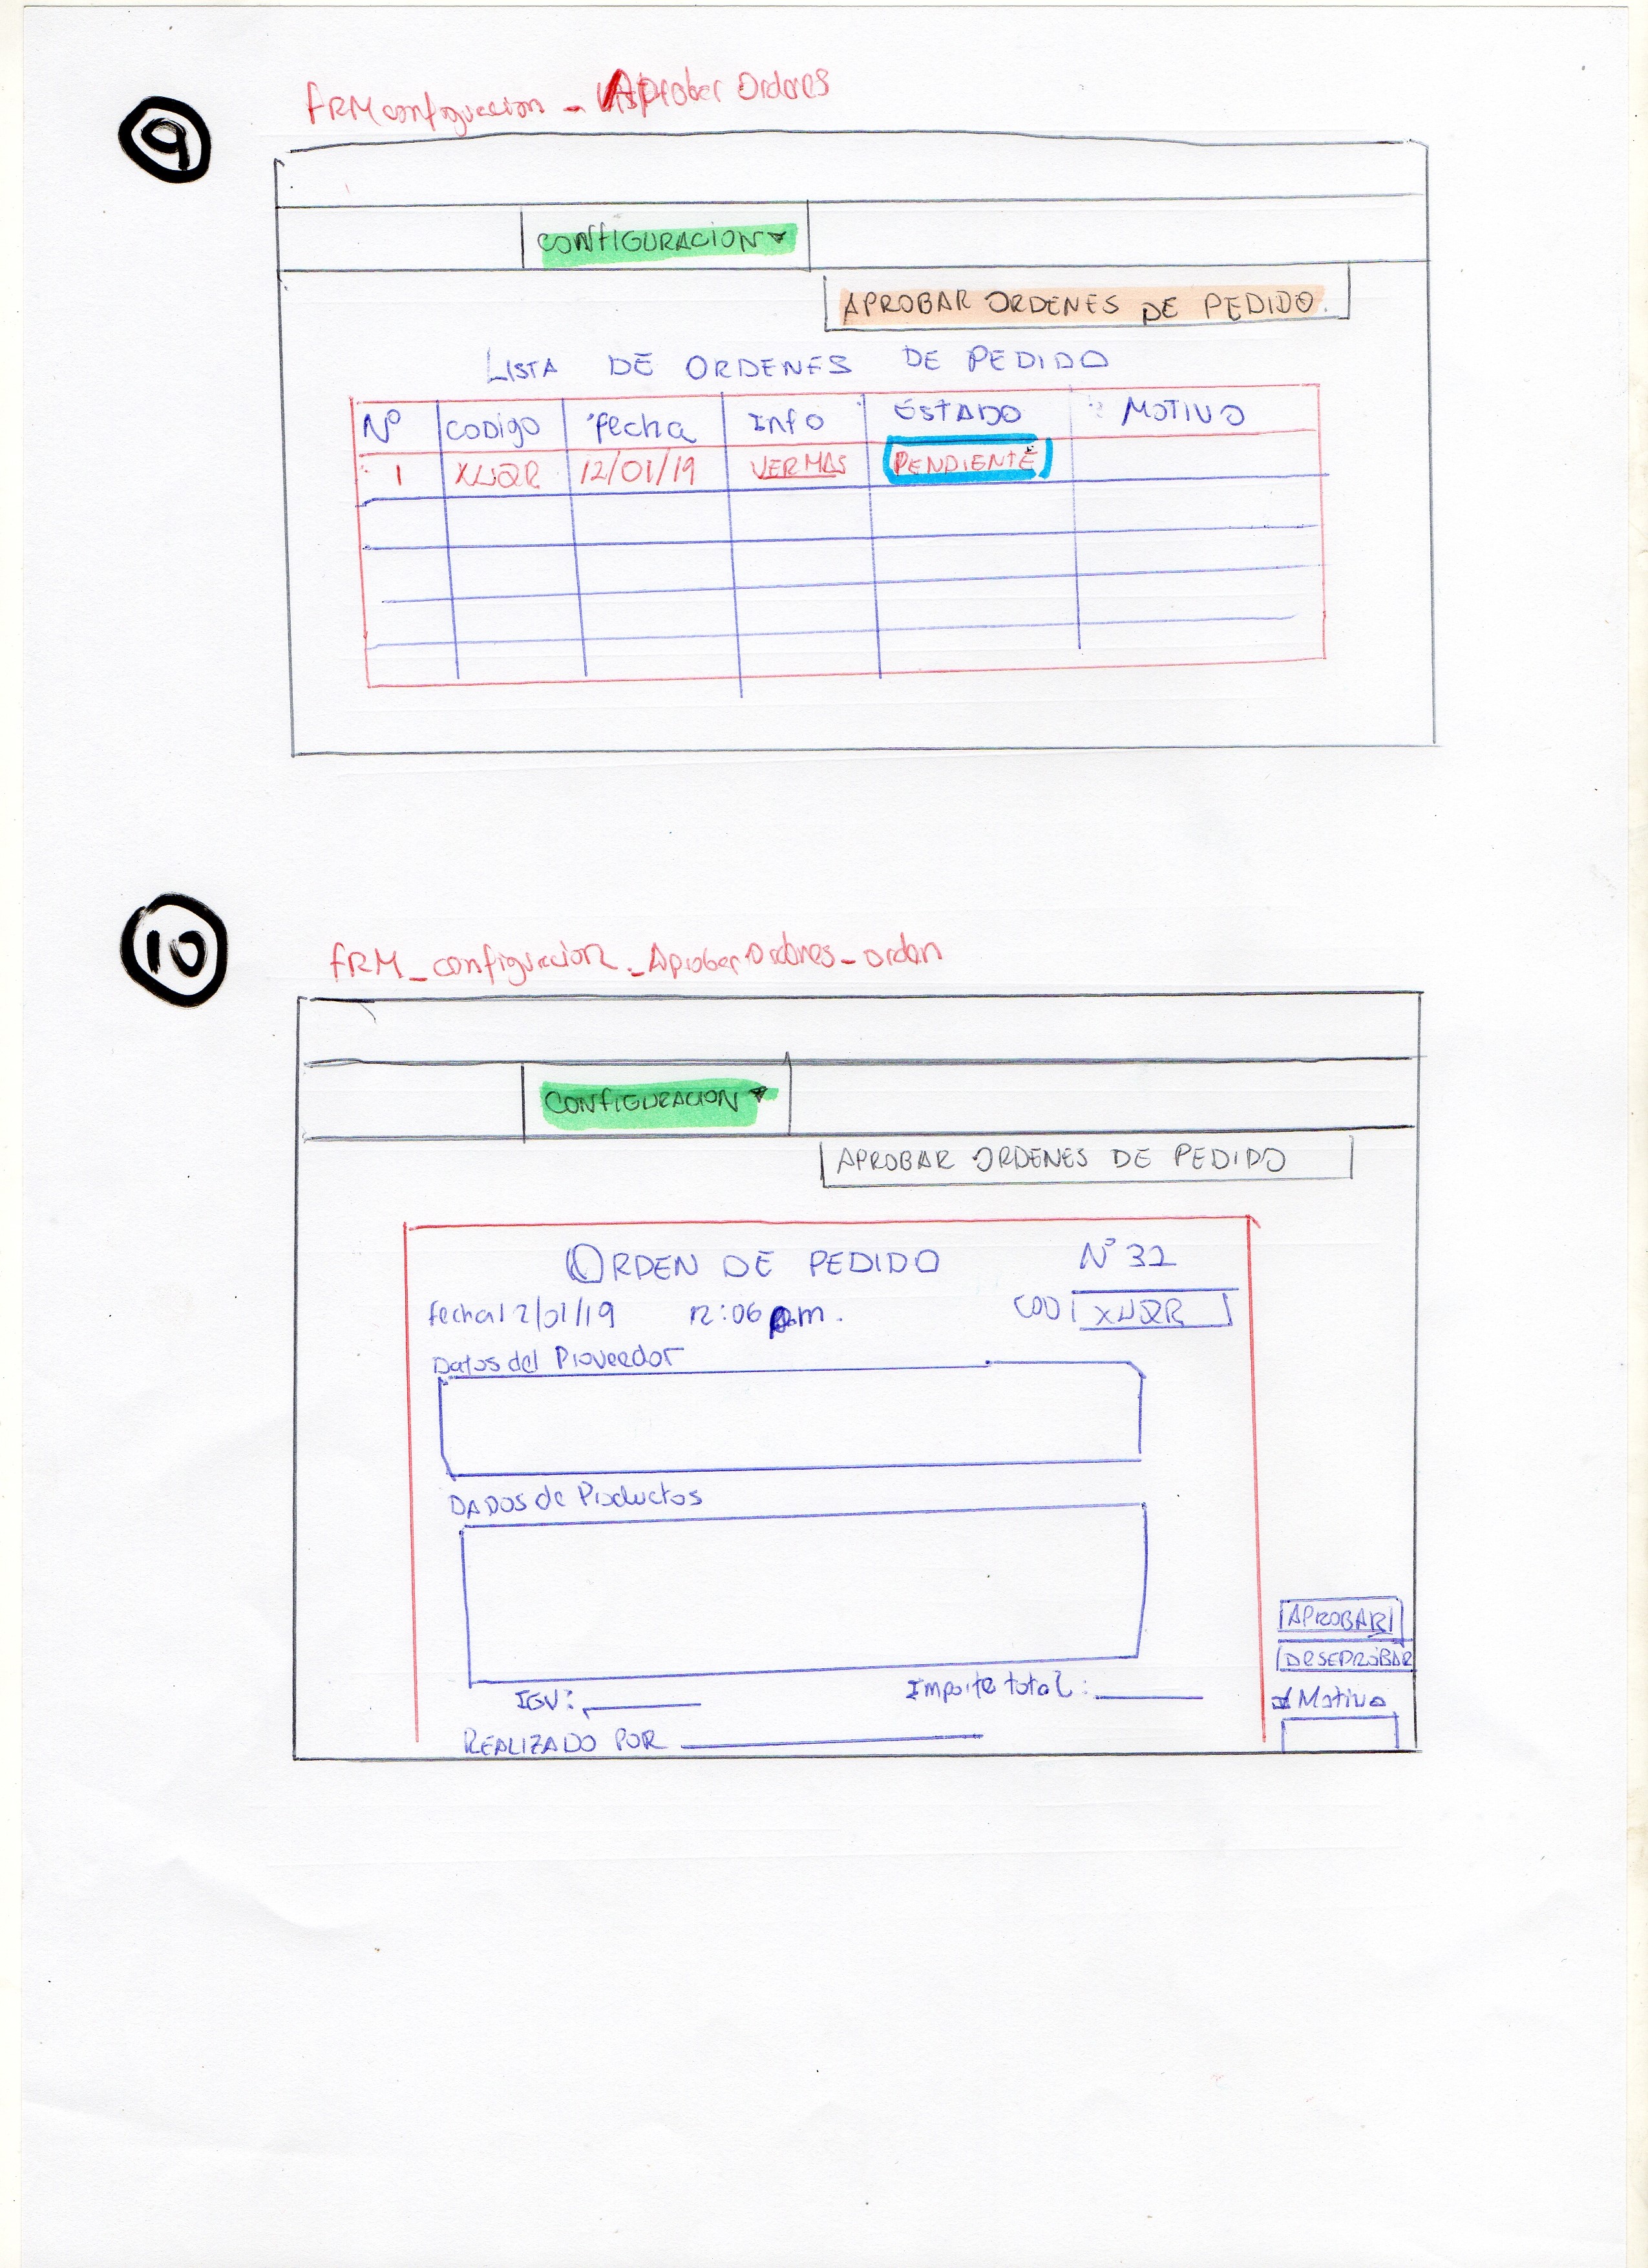 9
FRMconfiguracion_Aprobar Ordenes
CONFIGURACION
APROBAR ORDENES DE PEDIDO.
LISTA DE ORDENES DE PEDIDO
Nº CODIGO fecha Info ESTADO MOTIVO
1 12/01/19 VER MAS PENDIENTE
10
FRM_configuracion_AprobarOrdenes_orden
CONFIGURACION
APROBAR ORDENES DE PEDIDO
ORDEN DE PEDIDO Nº 32
fecha 12/01/19 12:06 pm. COD
Datos del Proveedor
DADOS de Productos
APROBAR
DESEPROBAR
IGV: Importe total: Motivo
REALIZADO POR